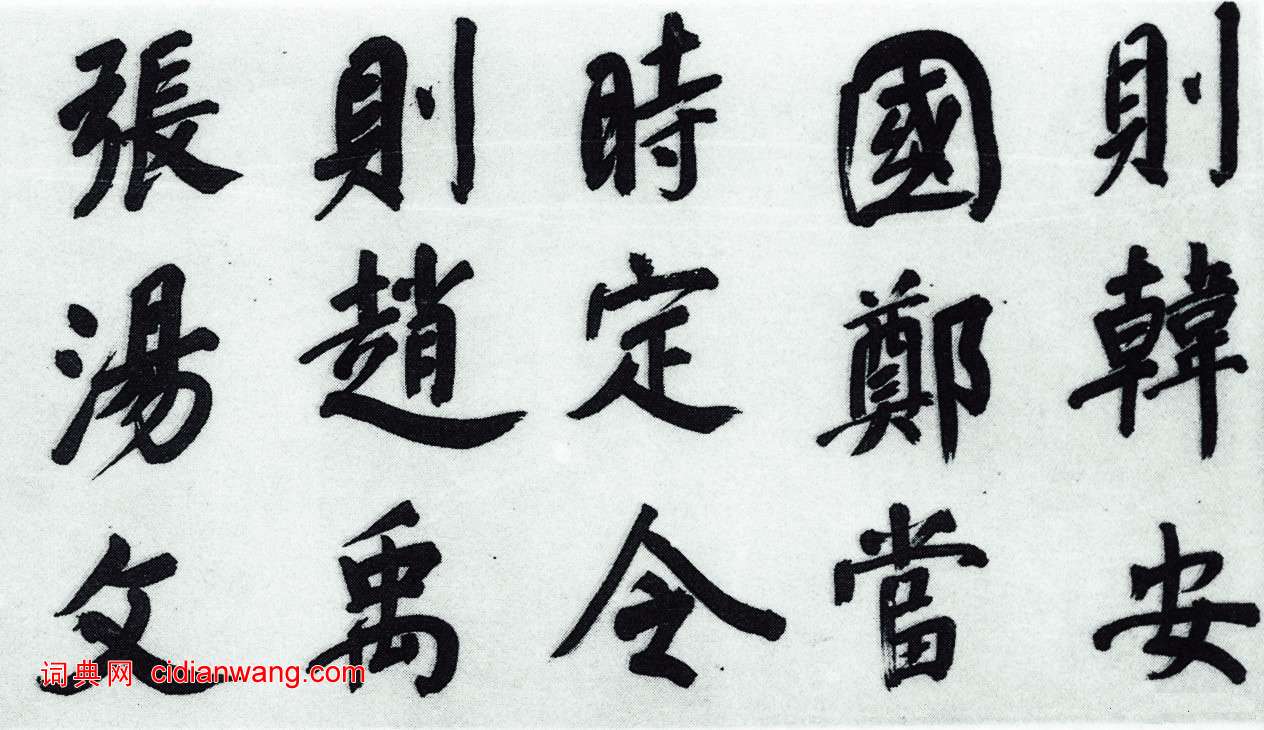 則韓安
國鄭當
時定令
則趙禹
張湯文
词典网 cidianwang.com